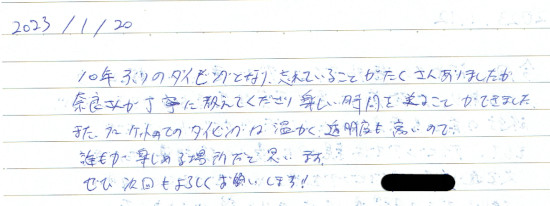 2023/1/20
10年ぶりのダイビングとなり、忘れていることがたくさんありましたが
奈良さんが丁寧に教えてくださり楽しい時間を送ることができました
また、ケットのでのダイビングは温かく透明度も高いので、
誰もが楽しめる場所だと思います。
ぜひ次回もよろしくお願いします!!